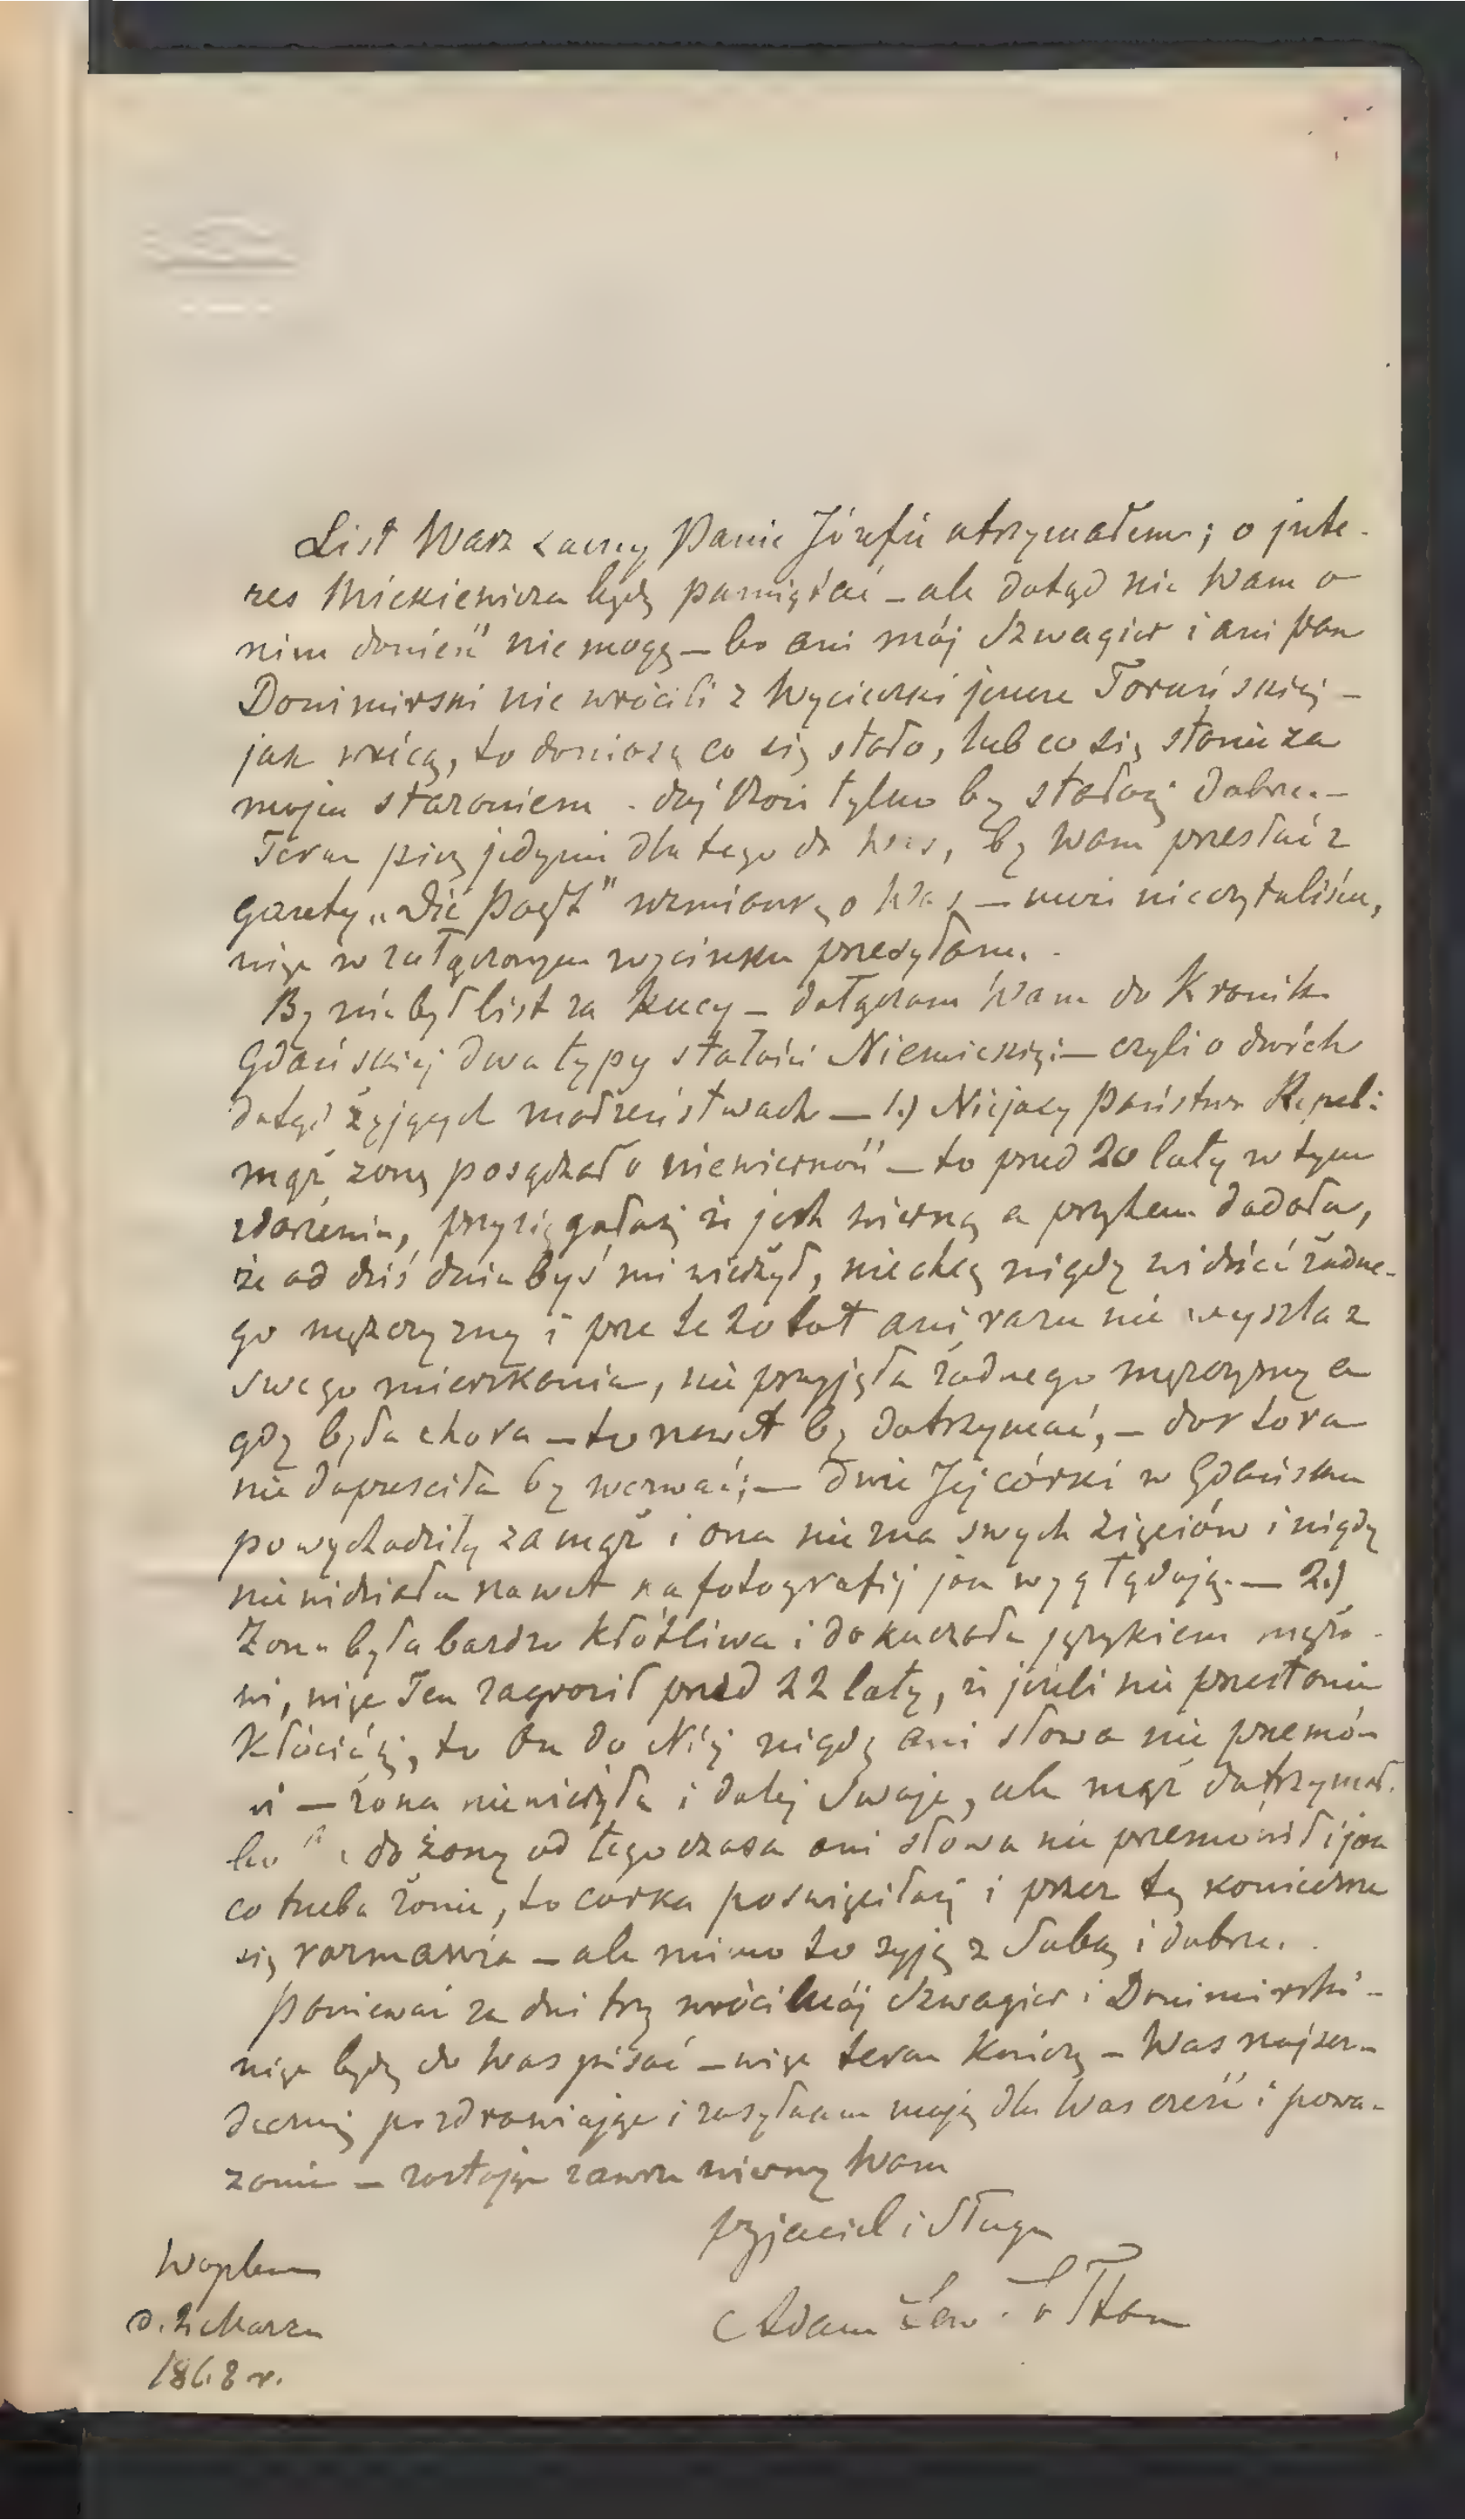 List Wasz zacny Panie Józefie otrzymałem; o inte-
res Mickiewicza będę pamiętać – ale dotąd nic Wam o
nim donieść nie mogę – bo ani mój Szwagier i ani pan
Donimirski nie wrócili z Wycieczki Toruńskiej –
jak wrócą, to doniosą co się stało, lub co się stanie za
mojem staraniem. daj Boże tylko by stałosię dobrze. –
Teraz piszę jedynie dla tego do Was, by Wam przesłać z
gazety „Die Post" wzmiankę o Was – nie czytaliście,
więc w załączonym wycinku przesyłam.
By nie był list za kucy – dołączam Wam do Kroniki
Gdańskiej dwa typy stałości Niemieckiej – czyli o dwóch
dotąd żyjących małżeństwach – 1.) Niejacy Państwo
mąż żonę posądzał o niewierność – to przed 20 laty w tym
zdarzeniu, przysięgałasię że jest wierną a przytem dodała,
że od dziś dnia byś mi wierzył, niechcę nigdy widzieć żadne-
go mężczyzny i prze te 20 lat ani razu nie wyszła z
swego mieszkania, nie przyjęła żadnego mężczyzny a
gdy była chora – to nawet by dotrzymać, – doktora
nie dopuściła by wezwać; – dwie Jej córki w Gdańsku
powychodziły za mąż i ona nie zna swych zięciów i nigdy
nie widziała nawet na fotografij jak wyglądają. – 2.)
Żona była bardzo kłótliwa i dokuczała językiem mężo-
wi, więc Ten zagroził przed 22 laty, że jeżeli nie przestanie
kłócićsię, to On do Niéj nigdy ani słowa nie przemó-
wi – żona niewierzyła i dalej swoje, ale mąż dotrzymał.
bo do żony od tego czasu ani słowa nie przemówił i jak
co trzeba żonie, to córka poświęciłasię i przez tę koniecznie
się rozmawia – ale mimo to żyją z sobą i dobrze.
Ponieważ za dni trzy wróci mój Szwagier i Donimirski –
więc będę do Was pisać – więc teraz kończę – Was najser-
deczniej pozdrawiając i zasyłam moją dla Was cześć i powa-
żanie – zostając zawsze wierny Wam
przjaciel i sługa
Adam
Waplewo
d. 2 Marca
1868 r.